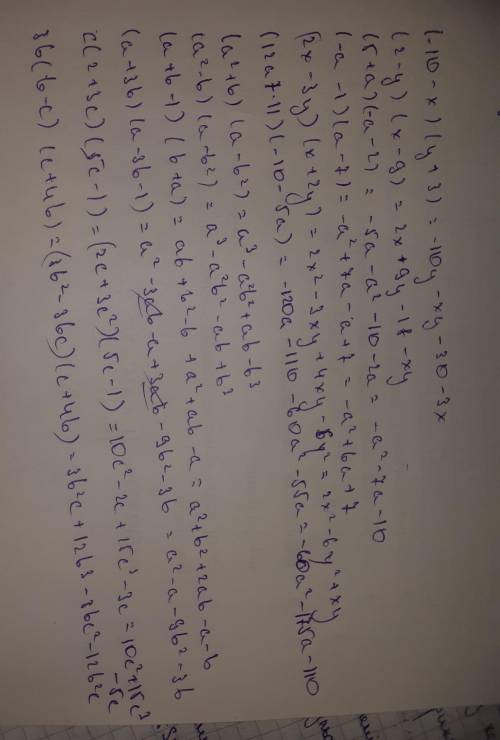 (-10-x)(y+3) = -10y-xy-30-3x
(2-y)(x-9) = 2x+9y-18-xy
(5+a)(-a-2) = -5a-a²-10-2a = -a²-7a-10
(-a-1)(a-7) = -a²+7a-a+7 = -a²+6a+7
(2x-3y)(x+2y) = 2x²-3xy+4xy-6y² = 2x²-6y²+xy
(-10-5a) = -120a-110-60a²-55a = -60a²-175a-110
(a²+b)(a-b²) = a³-a²b²+ab-b³
(a²-b)(a-b²) = a³-a²b²-ab+b³
(a+b-1)(b+a) = ab+b²-b+a²+ab-a = a²+b²+2ab-a-b
(a+3b)(a-3b-1) = a²-3ab-a+3ab-9b²-3b = a²-a-9b²-3b
c(2+3c)(5c-1) = (2c+3c²)(5c-1) = 10c²-2c+15c³-3c = 10c²+15c³
-5c
3b(b-c)(c+4b) = (3b²-3bc)(c+4b) = 3b²c+12b³-3bc²-12b²c